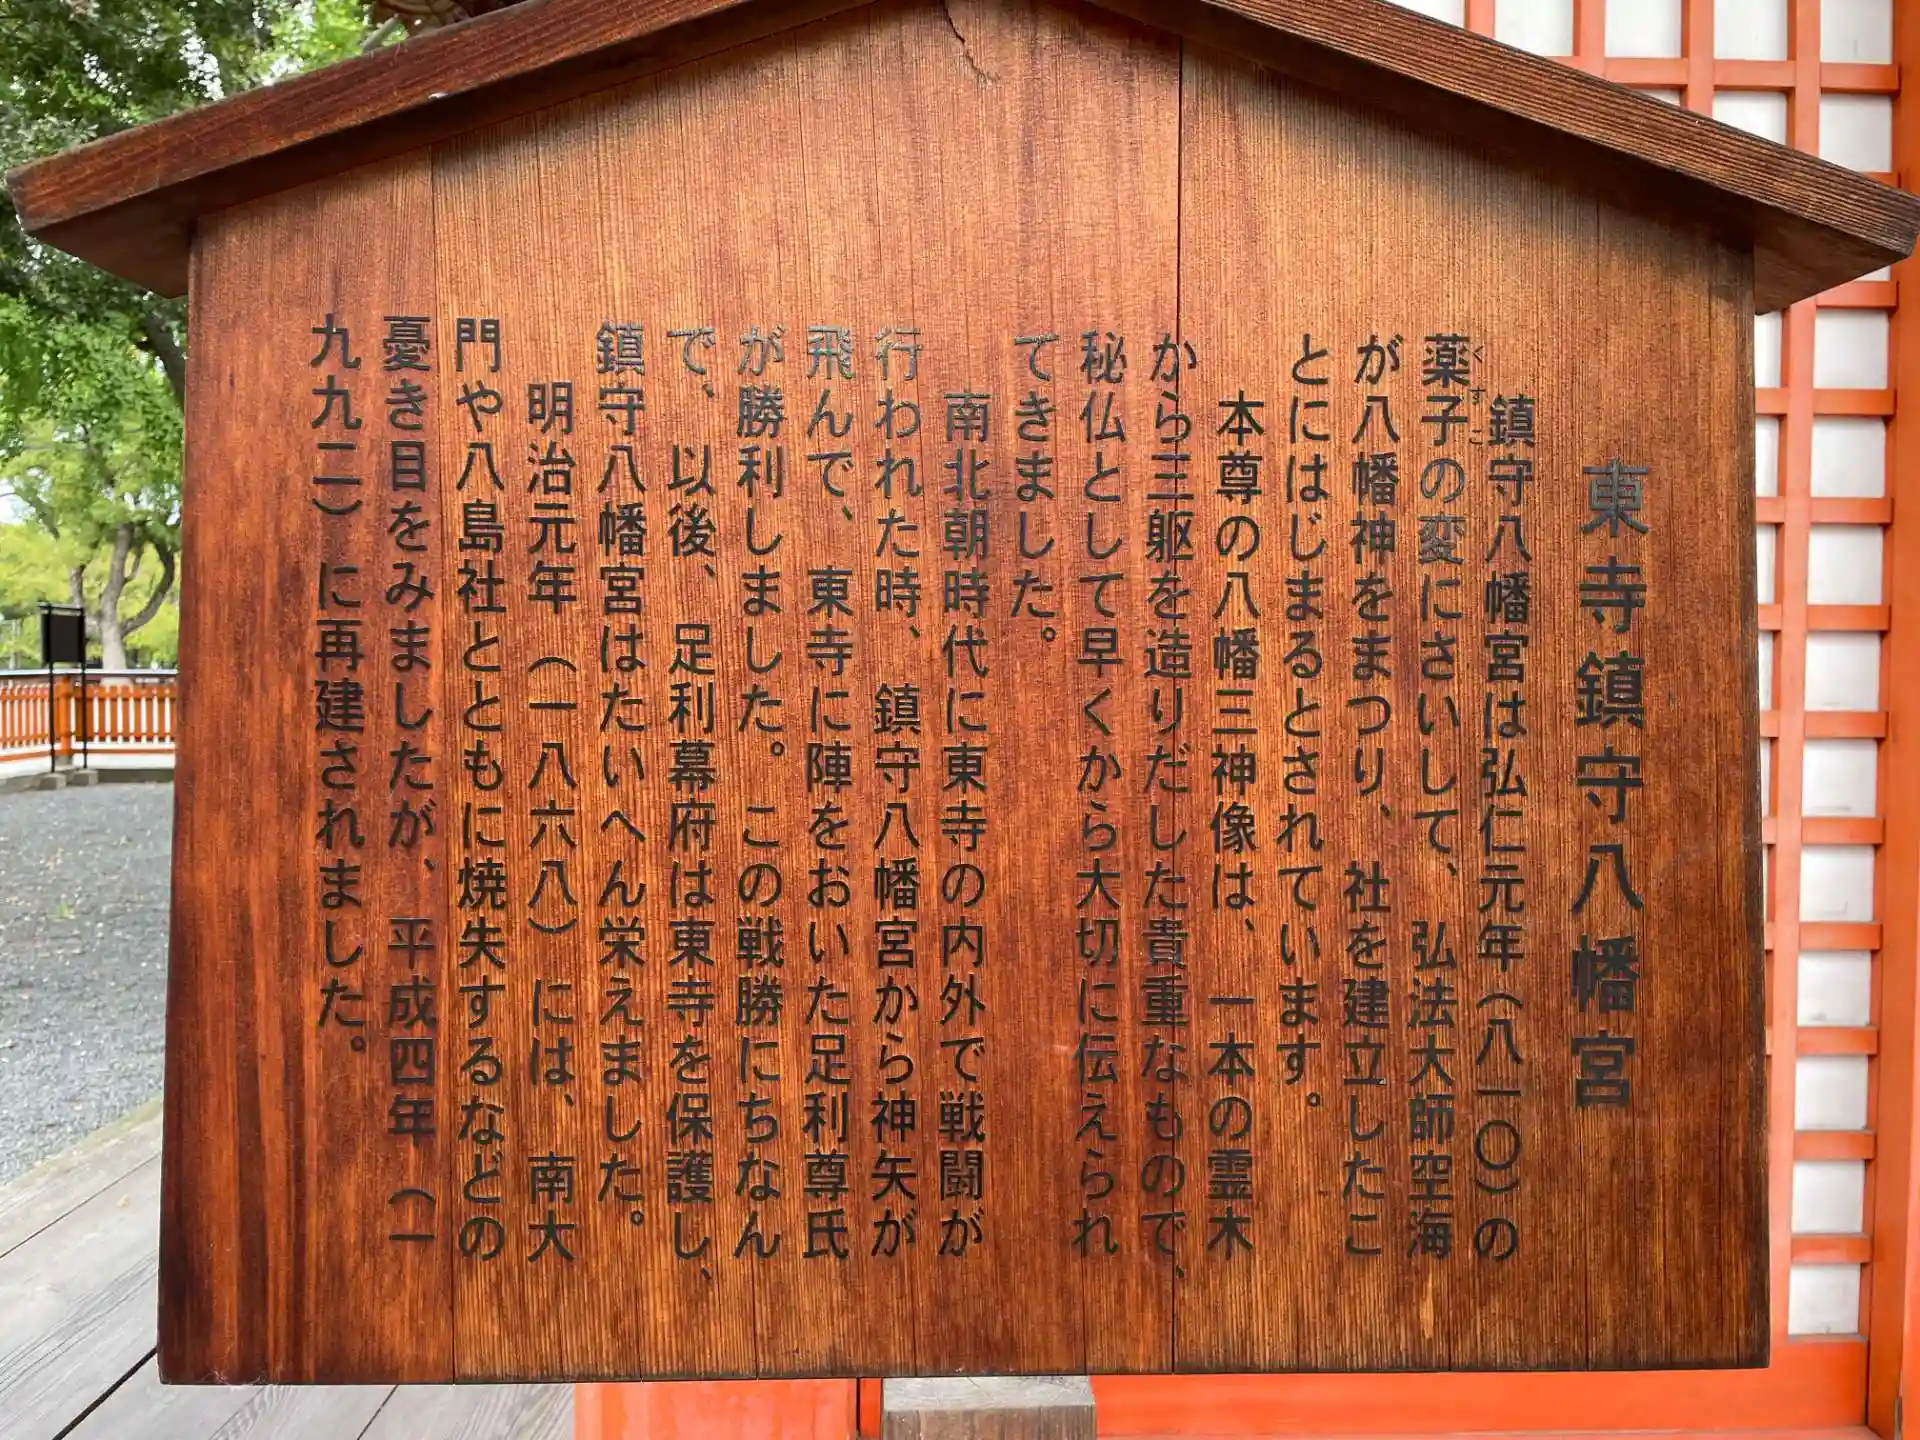 東寺鎮守八幡宮
鎮守八幡宮は弘仁元年（八一〇）の
くすこ
薬子の変にさいして、弘法大師空海
が八幡神をまつり、社を建立したこ
とにはじまるとされています。
本尊の八幡三神像は、一本の霊木
から三躯を造りだした貴重なもので、
秘仏として早くから大切に伝えられ
てきました。
南北朝時代に東寺の内外で戦闘が
行われた時、鎮守八幡宮から神矢が
飛んで、東寺に陣をおいた足利尊氏
が勝利しました。この戦勝にちなん
で、以後、足利幕府は東寺を保護し、
鎮守八幡宮はたいへん栄えました。
明治元年（一八六八）には、南大
門や八島社とともに焼失するなどの
憂き目をみましたが、平成四年（一
九九二）に再建されました。